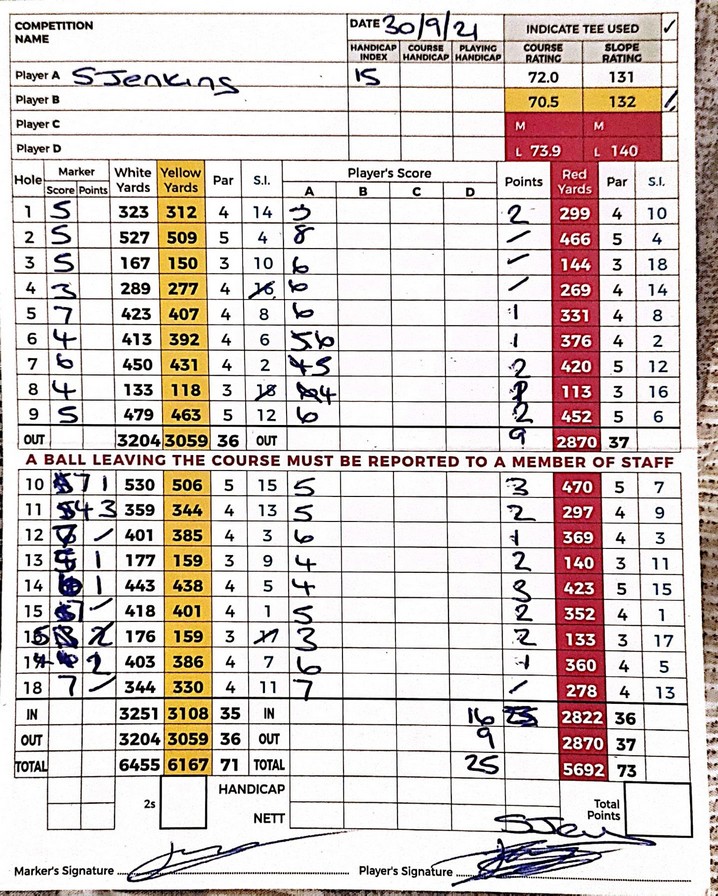 COMPETITION NAME DATE 30/9/21 INDICATE TEE USED ✓
HANDICAP INDEX COURSE HANDICAP PLAYING HANDICAP COURSE RATING SLOPE RATING
Player A S Jenkins 15 72.0 131
Player B 70.5 132
Player C M M
Player D L 73.9 L 140
Hole Marker White Yards Yellow Yards Par S.I. Player's Score Points Red Yards Par S.I.
Score Points A B C D
1 5 323 312 4 14 2 299 4 10
2 5 527 509 5 4 8 / 466 5 4
3 5 167 150 3 10 6 / 144 3 18
4 3 289 277 4 16 6 / 269 4 14
5 7 423 407 4 8 6 1 331 4 8
6 4 413 392 4 6 6 1 376 4 2
7 6 450 431 4 2 5 2 420 5 12
8 4 133 118 3 18 4 113 3 16
9 5 479 463 5 12 6 2 452 5 6
OUT 3204 3059 36 OUT 9 2870 37
A BALL LEAVING THE COURSE MUST BE REPORTED TO A MEMBER OF STAFF
10 7 1 530 506 5 15 5 3 470 5 7
11 4 3 359 344 4 13 5 2 297 4 9
12 / 401 385 4 3 6 1 369 4 3
13 1 177 159 3 9 4 2 140 3 11
14 1 443 438 4 5 4 3 423 5 15
15 7 / 418 401 4 1 5 2 352 4 1
16 176 159 3 17 3 2 133 3 17
17 403 386 4 7 6 1 360 4 5
18 7 / 344 330 4 11 7 / 278 4 13
IN 3251 3108 35 IN 16 2822 36
OUT 3204 3059 36 OUT 9 2870 37
TOTAL 6455 6167 71 TOTAL 25 5692 73
2s HANDICAP Total Points
NETT
Marker's Signature Player's Signature